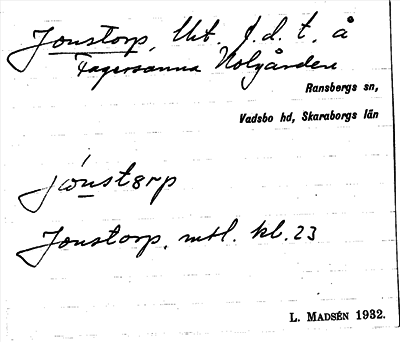 Jonstorp, Uht. f.d.t. å
Fagersanna Holgården
Ransbergs sn,
Vadsbo hd, Skaraborgs län
jònstɐrp
Jonstorp. mtl. kl. 23
L. MADSÉN 1932.